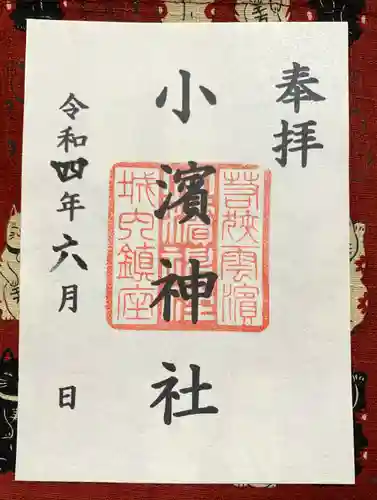 奉拝
小濱神社
若狭雲濱
小濱神社
城内鎮座
令和四年六月 日